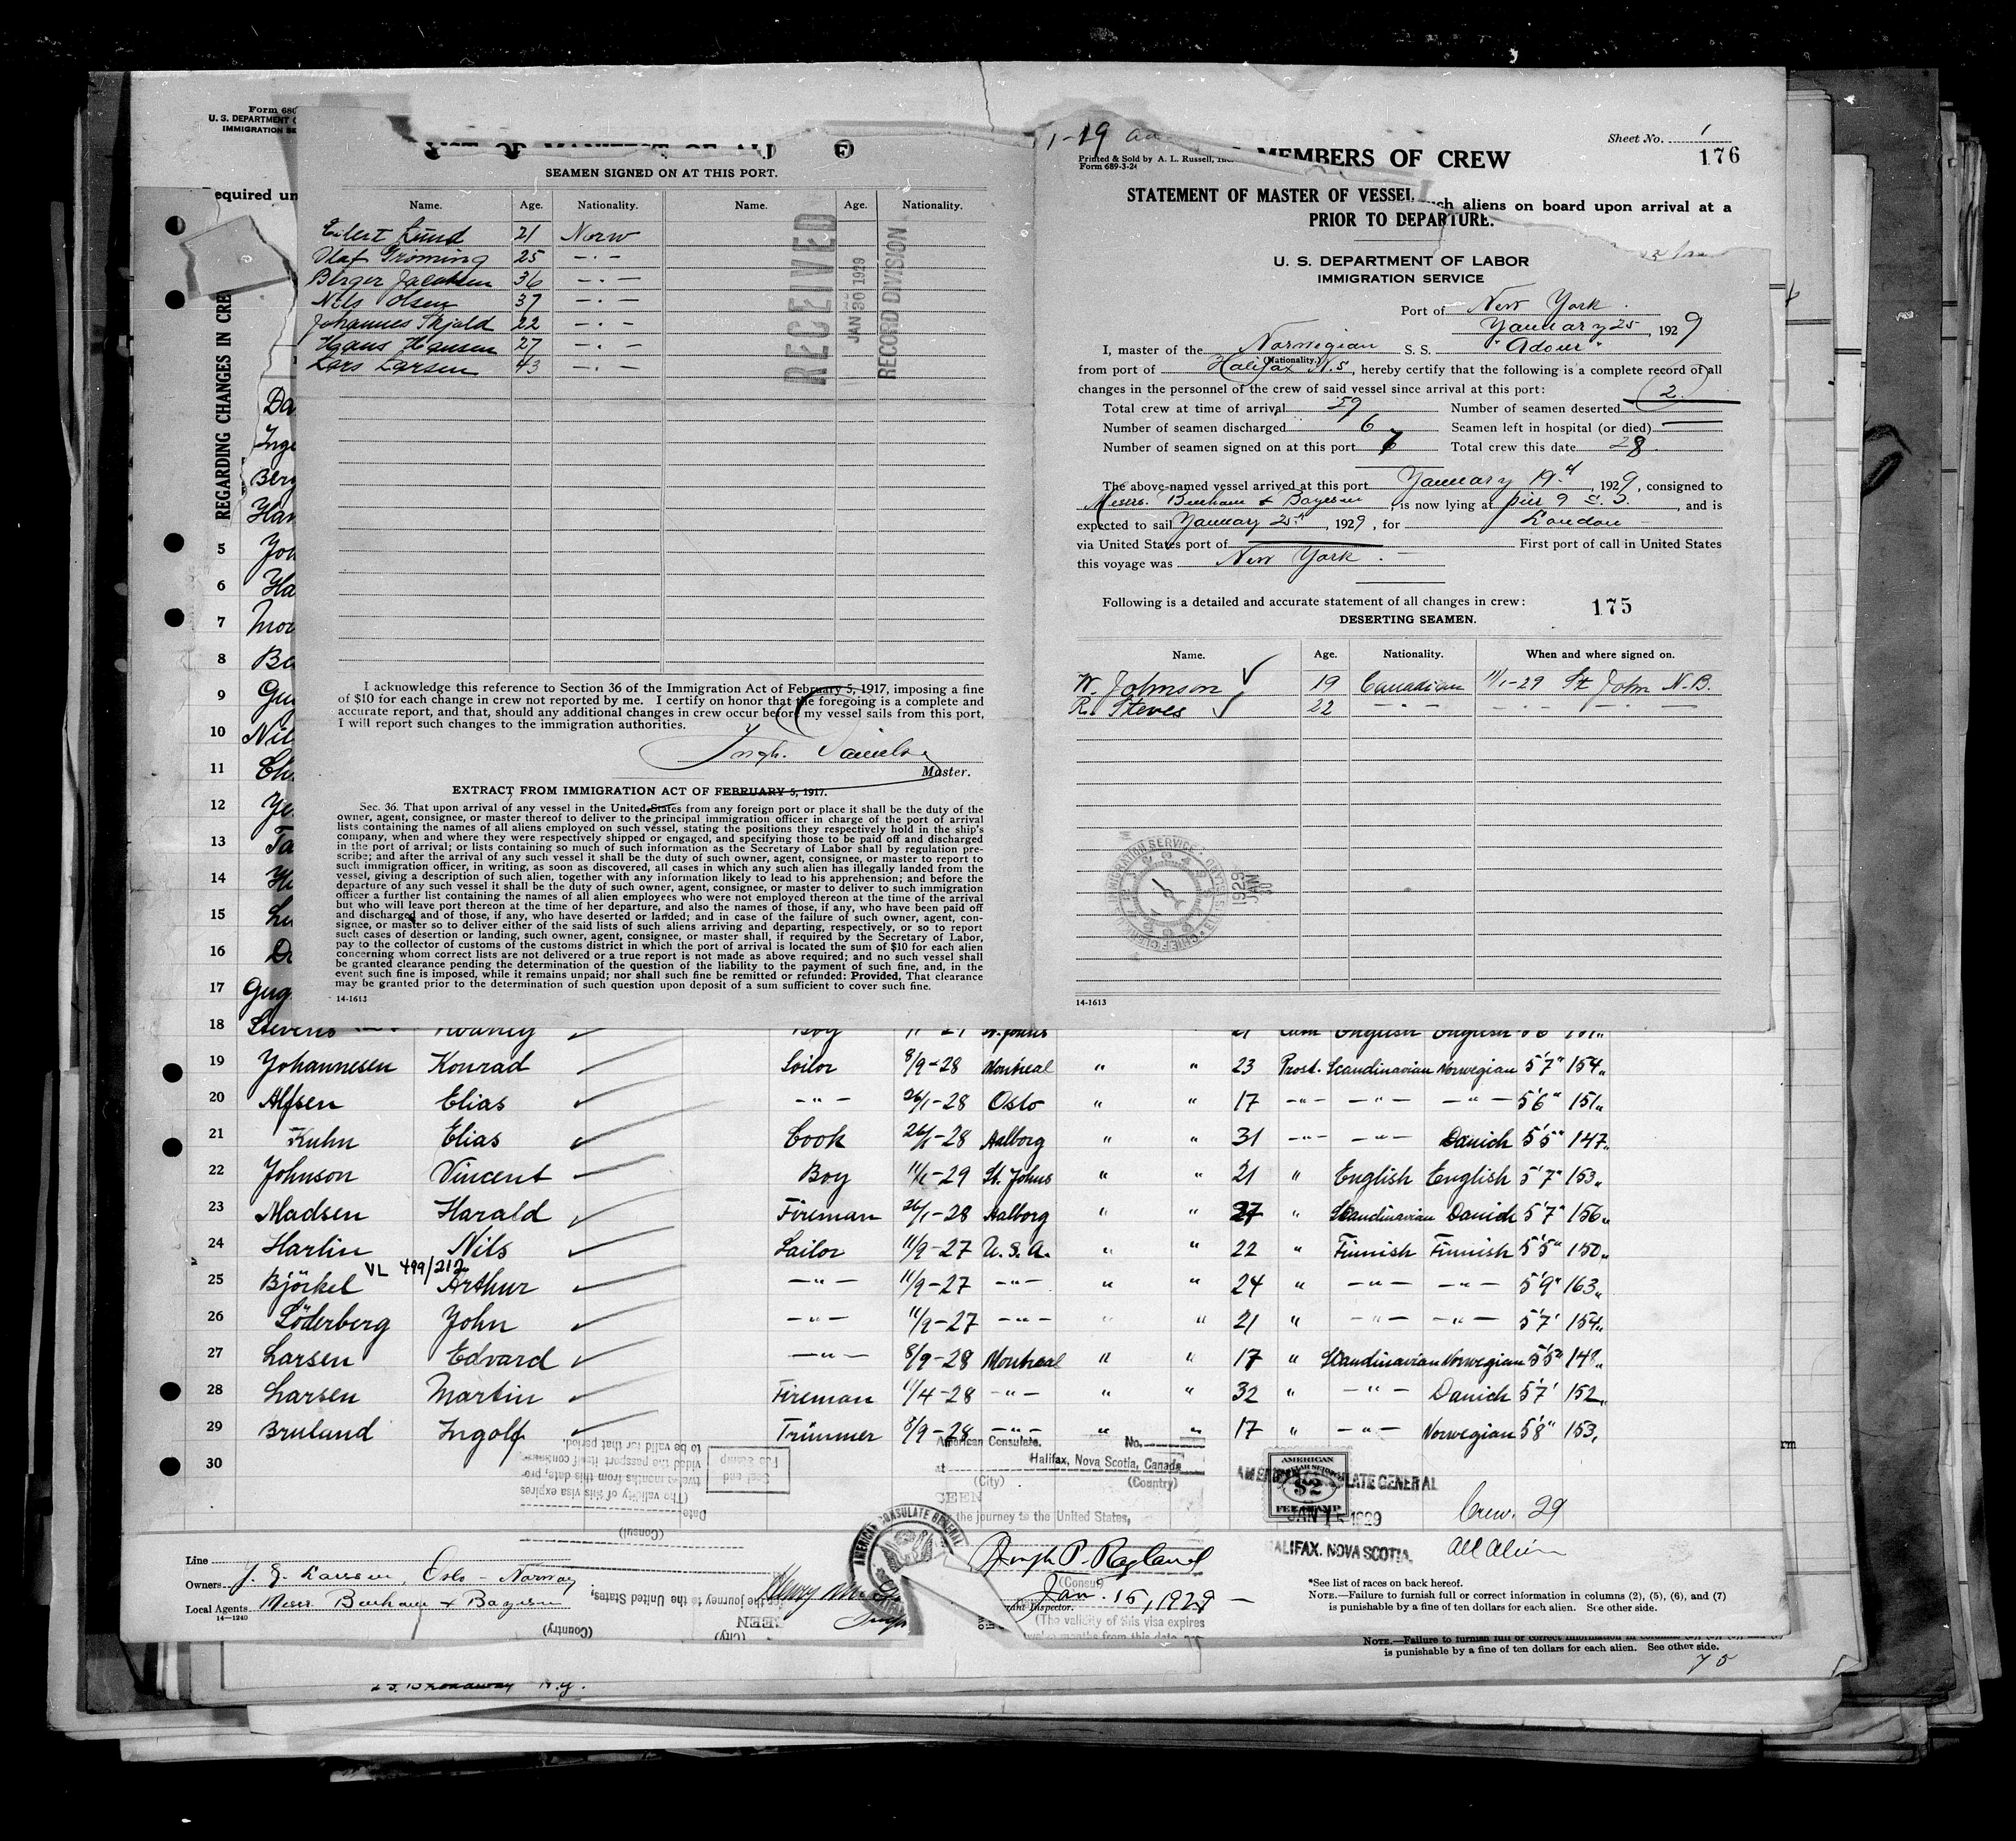 Form 680
U. S. DEPARTMENT O
IMMIGRATION SE
equired un
REGARDING CHANGES IN CRE
SEAMEN SIGNED ON AT THIS PORT.
Name. Age. Nationality. Name. Age. Nationality.
Eilert Lund 21 Norw
Olaf Groming 25 — " —
Berger Jacobsen 36 — " —
Nils Olsen 37 — " —
Johannes Skjold 22 — " —
Haans Hansen 27 — " —
Lars Larsen 43 — " —
RECEIVED
JAN 30 1929
RECORD DIVISION
I acknowledge this reference to Section 36 of the Immigration Act of February 5, 1917, imposing a fine
of $10 for each change in crew not reported by me. I certify on honor that the foregoing is a complete and
accurate report, and that, should any additional changes in crew occur before my vessel sails from this port,
I will report such changes to the immigration authorities.
Master.
EXTRACT FROM IMMIGRATION ACT OF FEBRUARY 5, 1917.
Sec. 36. That upon arrival of any vessel in the United States from any foreign port or place it shall be the duty of the
owner, agent, consignee, or master thereof to deliver to the principal immigration officer in charge of the port of arrival
lists containing the names of all aliens employed on such vessel, stating the positions they respectively hold in the ship's
company, when and where they were respectively shipped or engaged, and specifying those to be paid off and discharged
in the port of arrival; or lists containing so much of such information as the Secretary of Labor shall by regulation pre-
scribe; and after the arrival of any such vessel it shall be the duty of such owner, agent, consignee, or master to report to
such immigration officer, in writing, as soon as discovered, all cases in which any such alien has illegally landed from the
vessel, giving a description of such alien, together with any information likely to lead to his apprehension; and before the
departure of any such vessel it shall be the duty of such owner, agent, consignee, or master to deliver to such immigration
officer a further list containing the names of all alien employees who were not employed thereon at the time of the arrival
but who will leave port thereon at the time of her departure, and also the names of those, if any, who have been paid off
and discharged and of those, if any, who have deserted or landed; and in case of the failure of such owner, agent, con-
signee, or master so to deliver either of the said lists of such aliens arriving and departing, respectively, or so to report
such cases of desertion or landing, such owner, agent, consignee, or master shall, if required by the Secretary of Labor,
pay to the collector of customs of the customs district in which the port of arrival is located the sum of $10 for each alien
concerning whom correct lists are not delivered or a true report is not made as above required; and no such vessel shall
be granted clearance pending the determination of the question of the liability to the payment of such fine, and, in the
event such fine is imposed, while it remains unpaid; nor shall such fine be remitted or refunded: Provided, That clearance
may be granted prior to the determination of such question upon deposit of a sum sufficient to cover such fine.
14-1613
1-19
Printed & Sold by A. L. Russell, Inc.
Form 689-3-24
MEMBERS OF CREW
Sheet No. 1
176
STATEMENT OF MASTER OF VESSEL
PRIOR TO DEPARTURE.
such aliens on board upon arrival at a
U. S. DEPARTMENT OF LABOR
IMMIGRATION SERVICE
Port of New York
January 25, 1929
I, master of the Norwegian S. S. "Adour"
(Nationality.)
from port of Halifax N.S, hereby certify that the following is a complete record of all
changes in the personnel of the crew of said vessel since arrival at this port:
Total crew at time of arrival 29 Number of seamen deserted 2
Number of seamen discharged 6 Seamen left in hospital (or died) —
Number of seamen signed on at this port 7 Total crew this date 28
The above-named vessel arrived at this port January 19th, 1929, consigned to
Messrs. , is now lying at pier 9 , and is
expected to sail January 25th, 1929, for London
via United States port of — First port of call in United States
this voyage was New York
Following is a detailed and accurate statement of all changes in crew:
175
DESERTING SEAMEN.
Name. Age. Nationality. When and where signed on.
W. Johnson 19 Canadian 11/1-29 St John N.B.
R. Steves 22 — " — — " — — " —
IMMIGRATION SERVICE
JAN 30 1929
14-1613
Da
Inge
Berg
Han
5 Joh
6 Ha
7 Mor
8 Be
9 Gu
10 Nil
11 Ch
12 Je
13 Ta
14 He
15 Lu
16 Dr
17 Gug
18 Stevens Rodney Boy St. Johns 21 English English
19 Johannesen Konrad Soilor 8/9-28 Montreal " " 23 Prost. Scandinavian Norwegian 5'7" 154"
20 Alfsen Elias — " — 26/1-28 Oslo " " 17 — " — — " — — " — 5'6" 151"
21 Kuhn Elias Cook 26/1-28 Aalborg " " 31 — " — — " — Danich 5'5" 147"
22 Johnson Vincent Boy 11/1-29 St. Johns " " 21 " English English 5'7" 153"
23 Madsen Harald Fireman 26/1-28 Aalborg " " 27 " Scandinavian Danich 5'7" 156"
24 Harlin Nils Sailor 11/9-27 U.S.A. " " 22 " Finnish Finnish 5'5" 150"
VL 499/212
25 Björkel Arthur — " — 11/9-27 — " — " " 24 " — " — — " — 5'9" 163"
26 Söderberg John — " — 11/9-27 — " — " " 21 " — " — — " — 5'7' 154"
27 Larsen Edvard — " — 8/9-28 Montreal " " 17 " Scandinavian Norwegian 5'5" 148"
28 Larsen Martin Fireman 11/4-28 — " — " " 32 " — " — Danich 5'7' 152"
29 Bruland Ingolf Trimmer 8/9-28 — " — " " 17 " — " — Norwegian 5'8" 153"
30
to be valid for that period.
vided the passport itself continues
twelve months from this date, pro-
(The validity of this visa expires
Date
(Consul)
Seal and
Fee Stamp
American Consulate. No.
at Halifax, Nova Scotia, Canada
(City) (Country)
SEEN
the journey to the United States,
AMERICAN CONSULATE GENERAL
Joseph P. Ragland
(Consul)
Jan. 15, 1929
(The validity of this visa expires
twelve months from this date
AMERICAN
$2
FEE STAMP
AMERICAN CONSULATE GENERAL
JAN 15 1929
HALIFAX, NOVA SCOTIA,
Crew. 29
All Alien
Line
Owners J. Larssen, Oslo - Norway
Local Agents Messr.
14-1240
for the journey to the United States,
SEEN
(City)
(Country)
*See list of races on back hereof.
NOTE.—Failure to furnish full or correct information in columns (2), (5), (6), and (7)
is punishable by a fine of ten dollars for each alien. See other side.
NOTE.—Failure to furnish full or correct information in columns
is punishable by a fine of ten dollars for each alien. See other side.
75
Broadway N.Y.